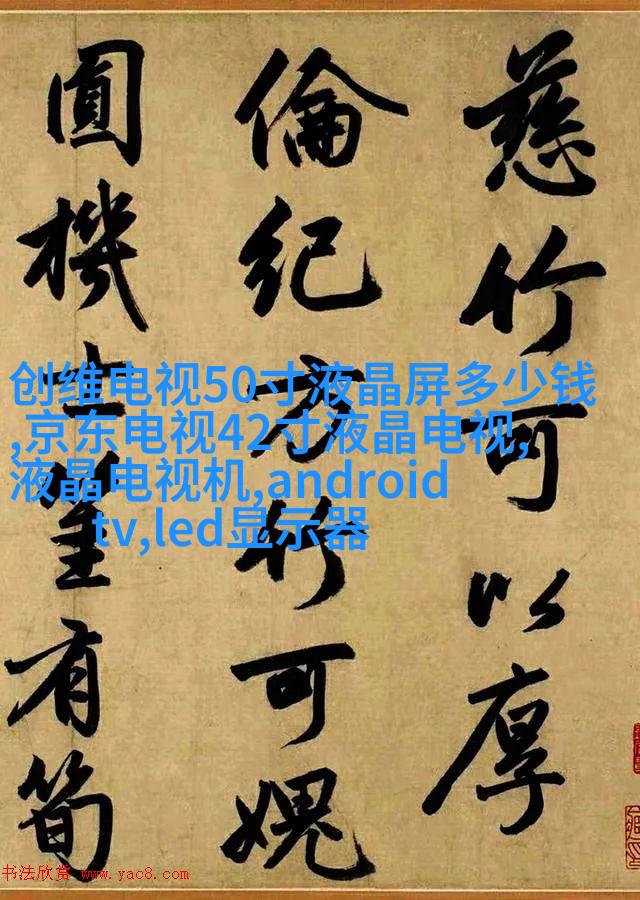 慈竹可以厚
倫紀方竹可媿
圓機士有筍
创维电视50寸液晶屏多少钱
,京东电视42寸液晶电视,
液晶电视机,android
tv,led显示器
书法欣赏 www.yac8.com